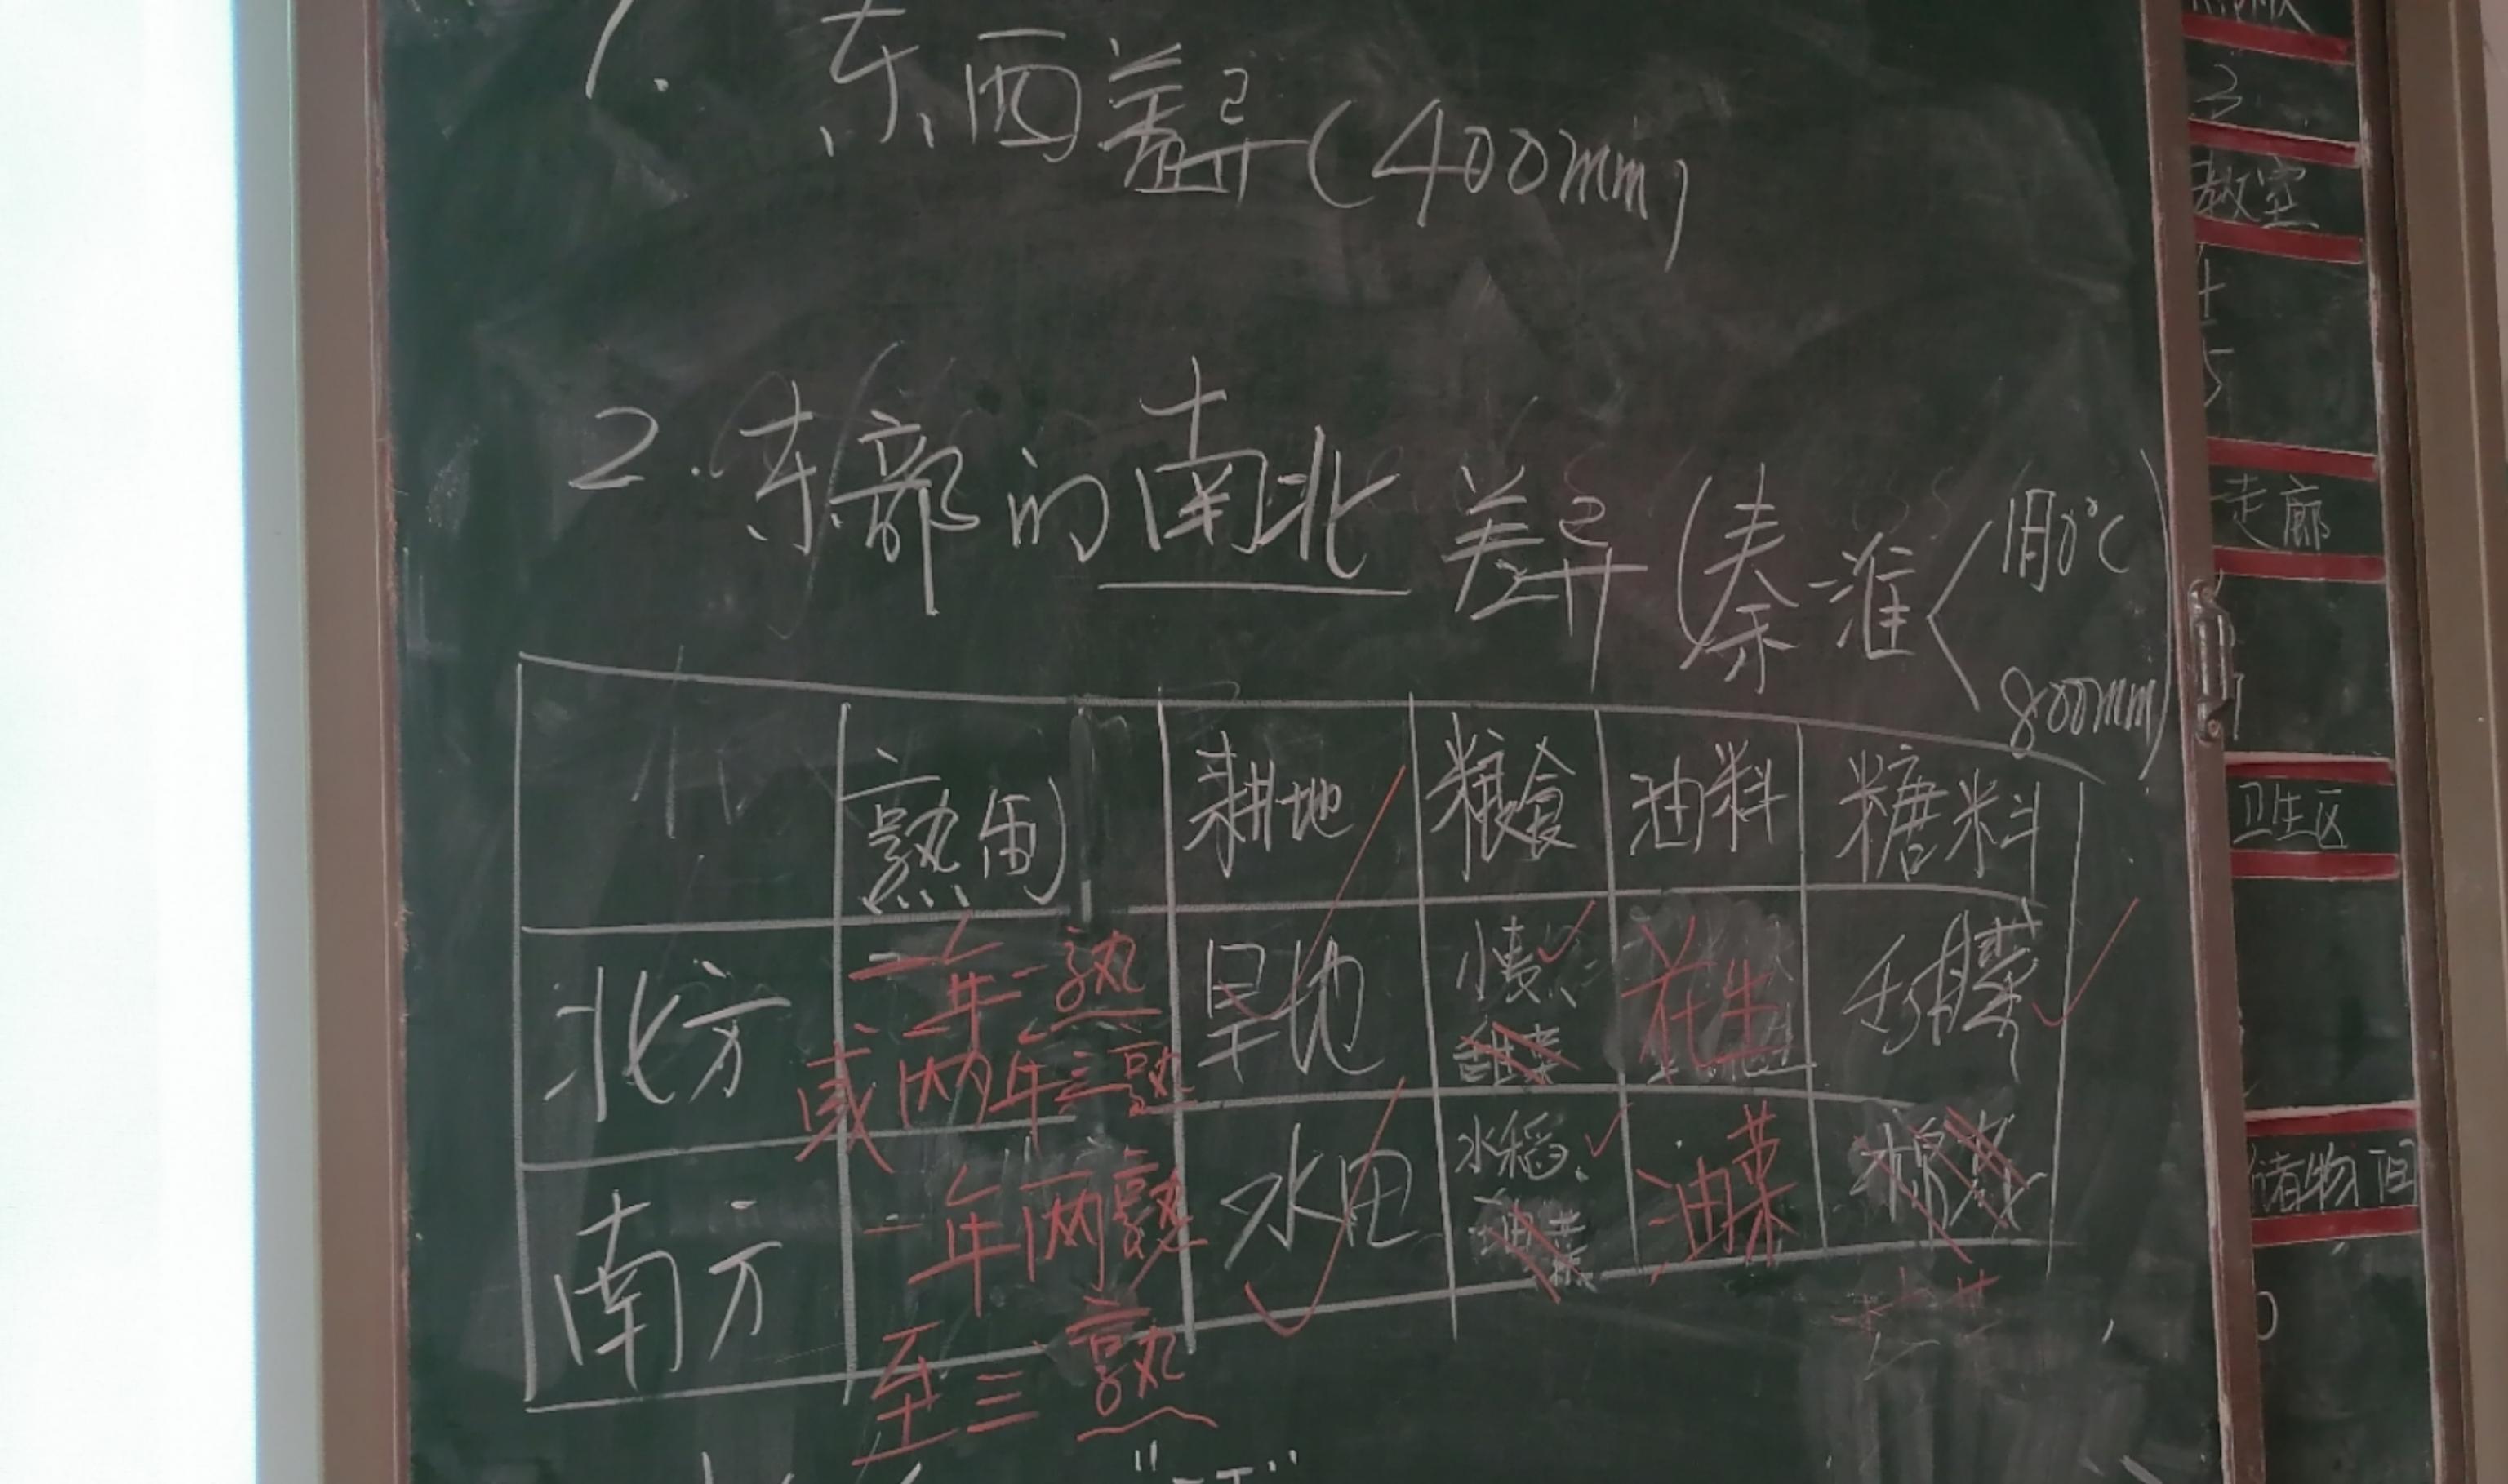 1. 东西差异(400mm)
2. 东部的南北差异(秦-淮 1月0℃ 800mm)
熟制 耕地 粮食 油料 糖料
北方 一年一熟或两年三熟 旱地 小麦 甜菜 花生 甜菜
南方 一年两熟至三熟 水田 水稻 油菜 油菜 棉花
3
教室
4
5
走廊
卫生区
储物间
0